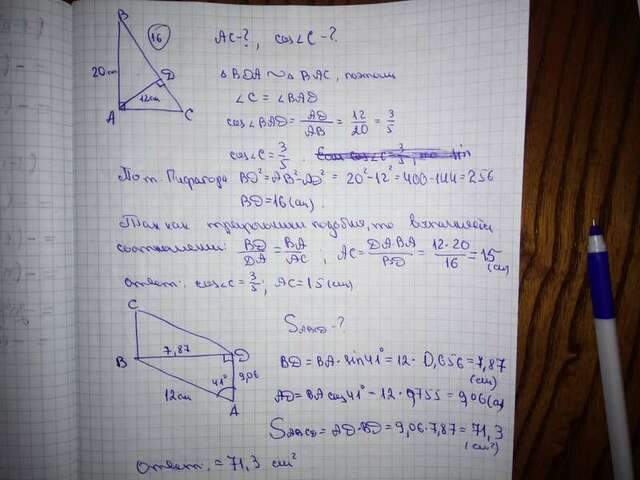 16
AC-?, cos∠C-?
20см
12см
A
B
C
D
△BDA ~ △BAC, поэтому
∠C = ∠BAD
cos∠BAD = AD/AB = 12/20 = 3/5
cos∠C = 3/5.
По т. Пифагора BD² = AB²-AD² = 20²-12² = 400-144 = 256
BD = 16 (см)
Так как треугольники подобны, то выполняем
соотношении: BD/DA = BA/AC; AC = DA·BA/BD = 12·20/16 = 15 (см)
Ответ: cos∠C = 3/5, AC = 15 (см)
B
C
A
D
12см
7,87
41°
9,06
S ABCD - ?
BD = BA·sin41° = 12·0,656 = 7,87 (см)
AD = BA cos41° = 12·0,755 = 9,06 (см)
S ABCD = AD·BD = 9,06·7,87 = 71,3 (см²)
Ответ: = 71,3 см²